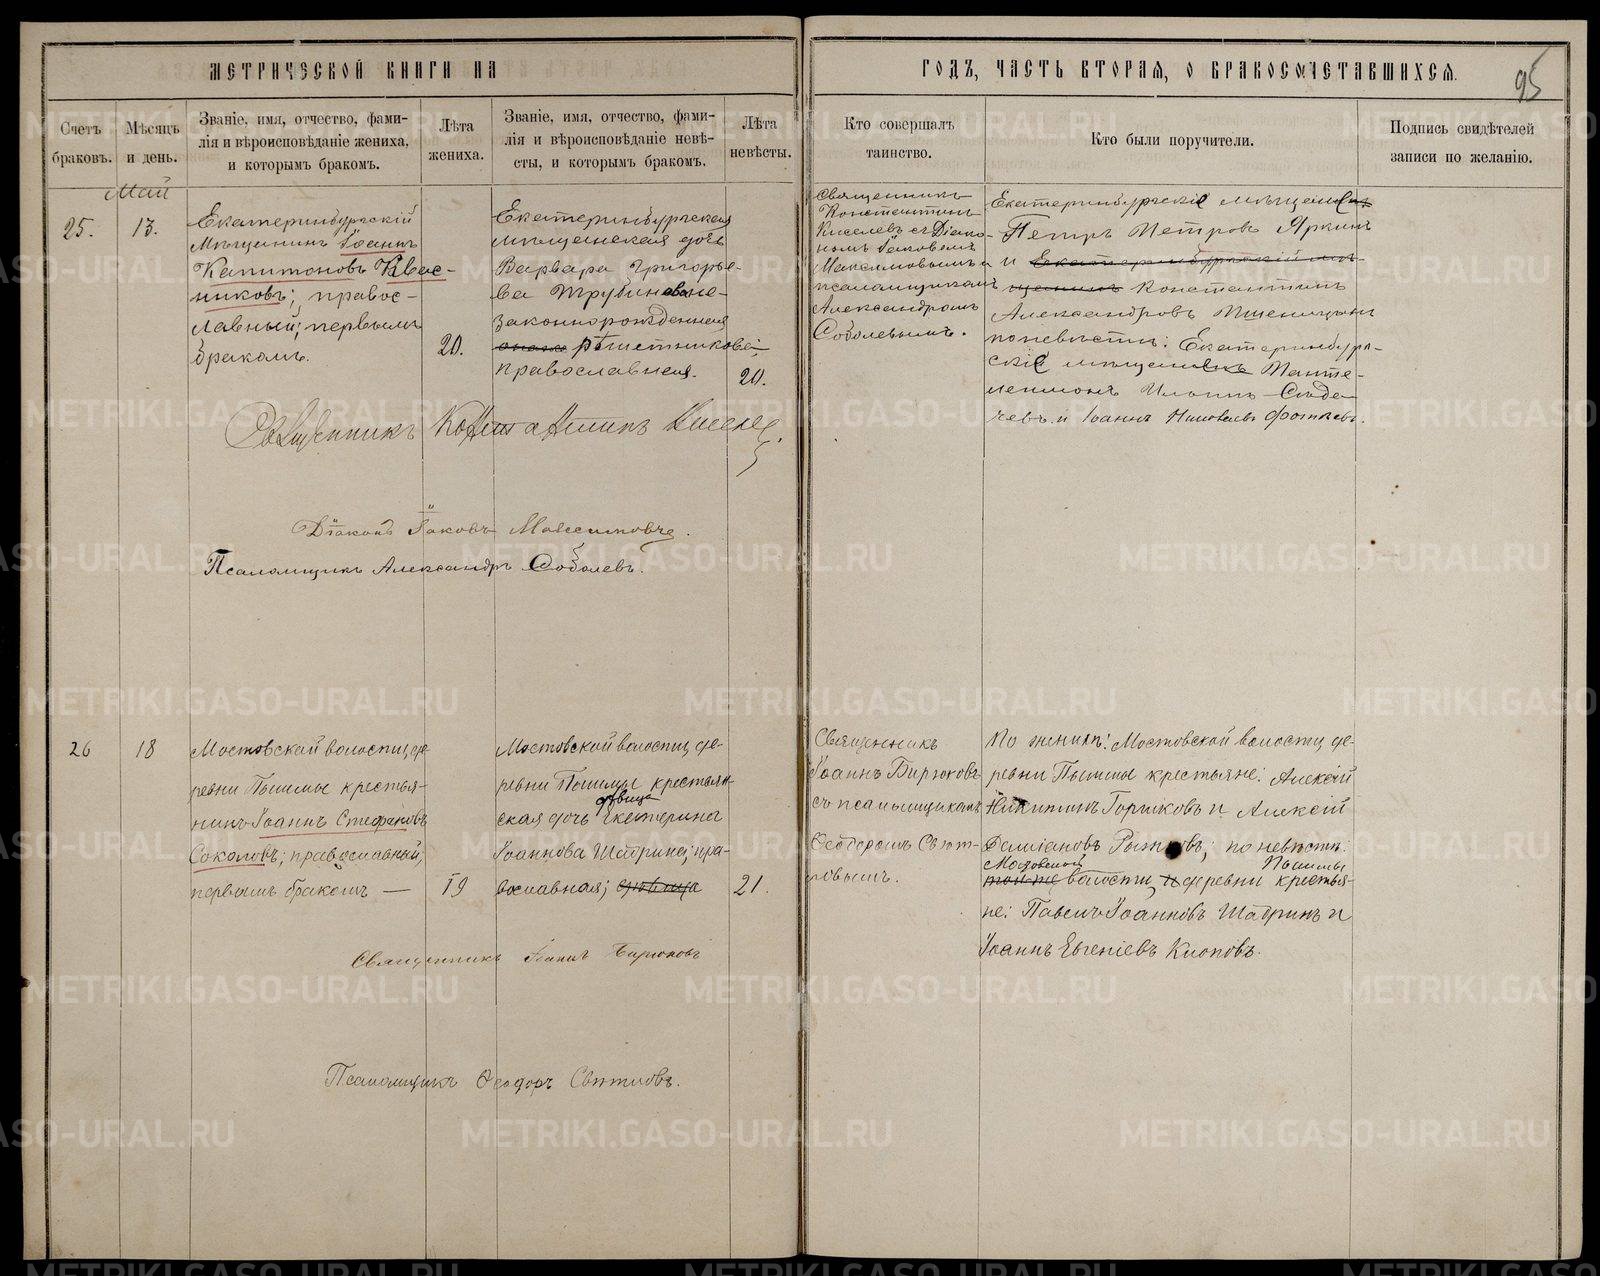 МЕТРИЧЕСКОЙ КНИГИ НА
ГОДЪ, ЧАСТЬ ВТОРАЯ, О БРАКОСОЧЕТАВШИХСЯ.
95
Счетъ
браковъ.
Мѣсяцъ
и день.
Званіе, имя, отчество, фами-
лія и вѣроисповѣданіе жениха,
и которымъ бракомъ.
Лѣта
жениха.
Званіе, имя, отчество, фами-
лія и вѣроисповѣданіе невѣ-
сты, и которымъ бракомъ.
Лѣта
невѣсты.
Кто совершалъ
таинство.
Кто были поручители.
Подпись свидѣтелей
записи по желанію.
Май
25.
13.
Екатеринбургскій
Мѣщанинъ Іоаннъ
Капитоновъ Квас-
никовъ; правос-
лавный; первымъ
бракомъ.
20.
Екатеринбургская
мѣщанская дочь
Варвара Григорье-
ва Трубина не-
законнорожденная
Рѣшетникова;
православная.
20.
Священникъ
Константинъ
Киселевъ съ Діако-
номъ Іаковымъ
Максимовымъ и
псаломщикомъ
Александромъ
Соболевымъ.
Екатеринбургскіе мѣщане
Петръ Петровъ Яркинъ
и Екатеринбургскій мѣ-
щанинъ Константинъ
Александровъ Пшеницын
по невѣсти: Екатеринбург-
скіе мѣщане Панте-
леимонъ
чевъ и Іоаннъ Фотіевъ.
Священникъ Константинъ Киселев
Діаконъ Іаковъ Максимовъ.
Псаломщикъ Александръ Соболевъ.
26
18
Мостовской волости де-
ревни Пышмы крестья-
нинъ Іоаннъ Стефановъ
Соколовъ; православный;
первымъ бракомъ —
19
Мостовской волости де-
ревни Пышмы крестьян-
дѣвица
ская дочь Екатерина
Іоаннова Шаврина; пра-
вославная; дѣвица
21.
Священникъ
Іоаннъ Бирюковъ
съ псаломщикомъ
Ѳеодоромъ Свѣт-
ловымъ.
По женихѣ: Мостовской волости де-
ревни Пышмы крестьяне: Алексій
Никитинъ Горшковъ и Алексій
Даміановъ; по невѣстѣ:
Мостовской Пышмы
той же волости и деревни крестья-
не: Павелъ Іоанновъ Шавринъ и
Іоаннъ Евгеніевъ Клоповъ.
Священникъ Іоаннъ Бирюковъ
Псаломщикъ Ѳеодоръ Свѣтловъ.
METRIKI.GASO-URAL.RU